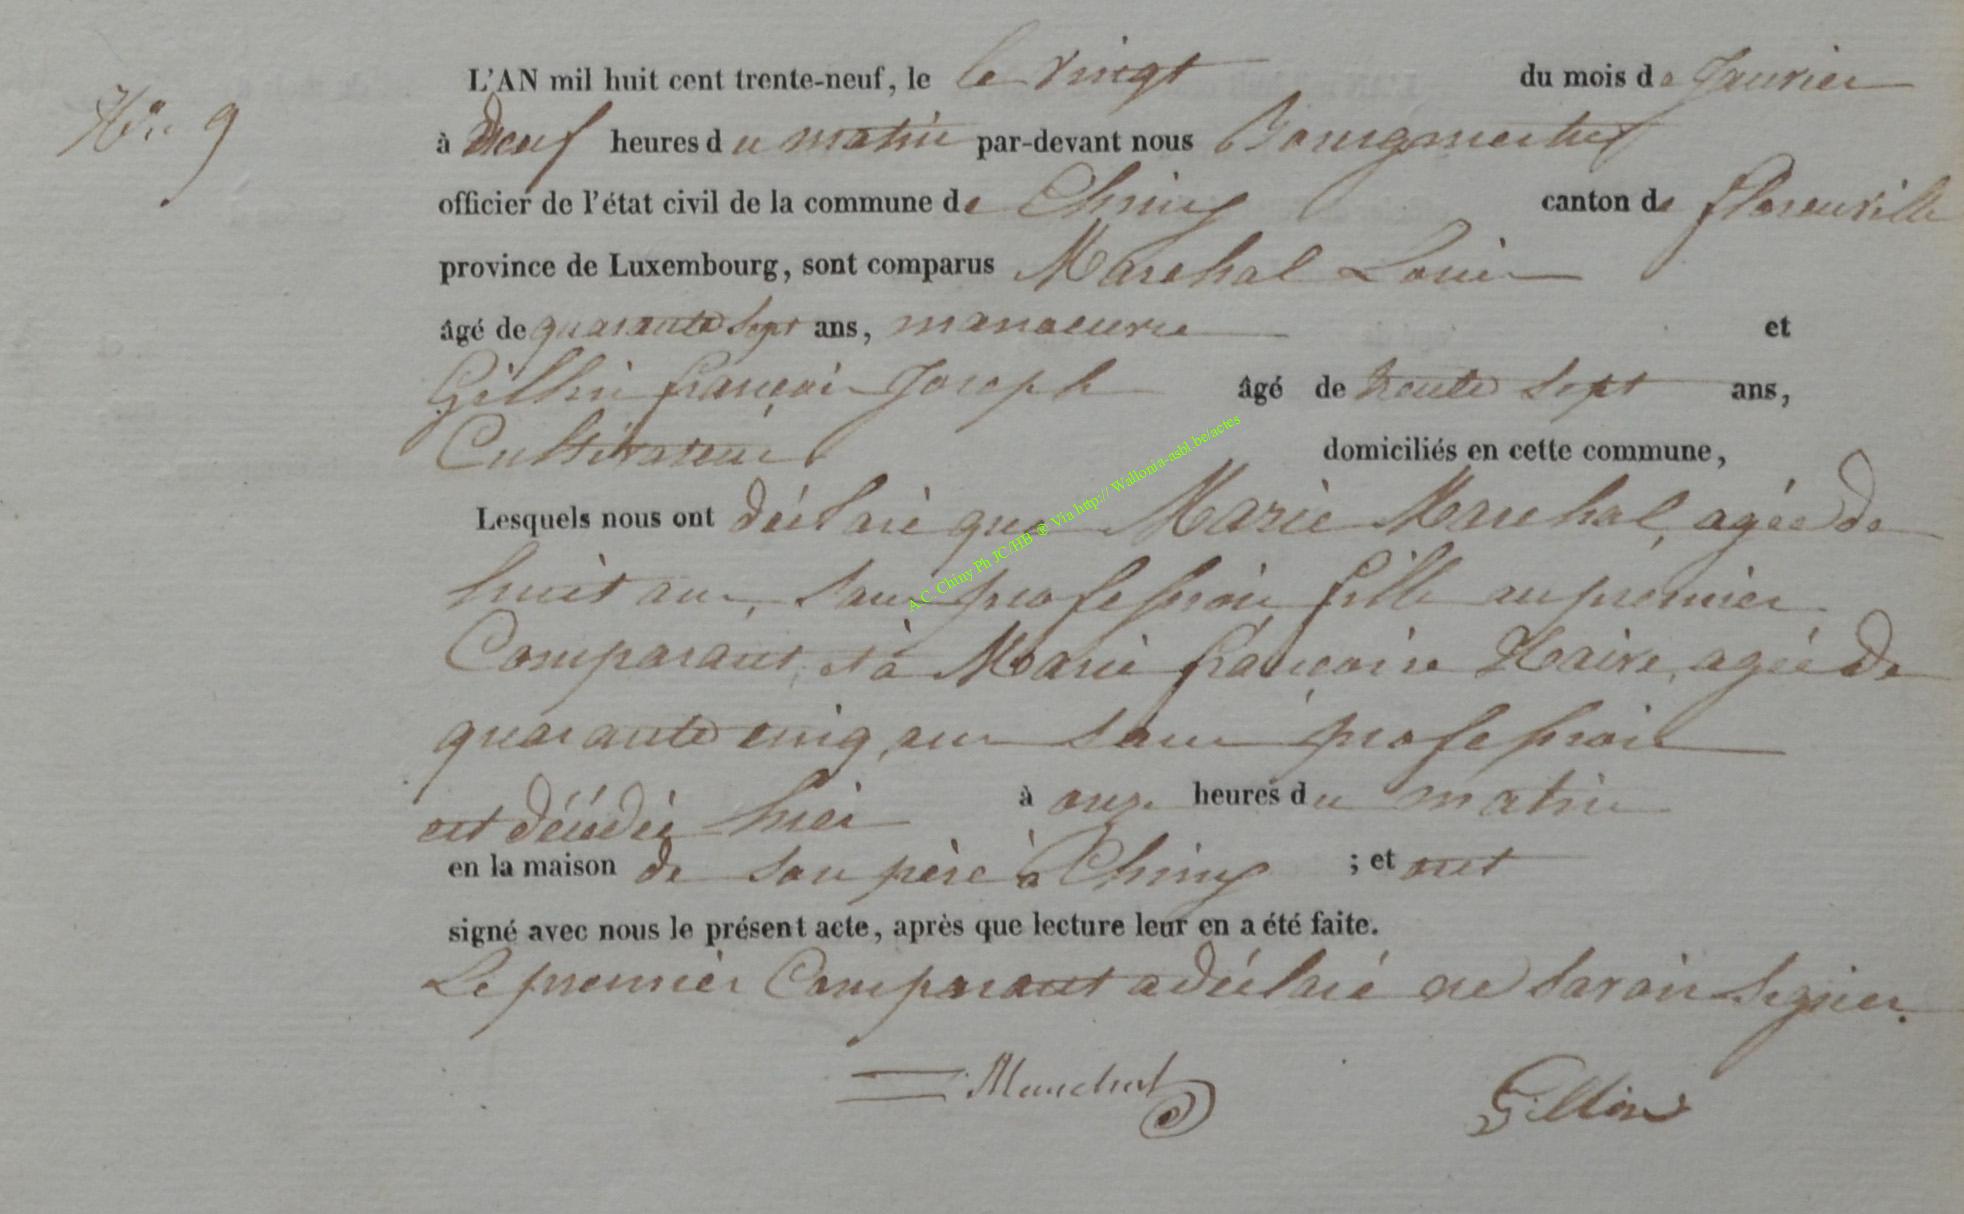 No. 9
L'AN mil huit cent trente-neuf, le le vingt du mois de Janvier
à neuf heures du matin par-devant nous Bourgmestre
officier de l'état civil de la commune de Chiny canton de florenville
province de Luxembourg, sont comparus Marchal Louis
âgé de quarante sept ans, manoeuvre et
Gillin françois Joseph âgé de trente sept ans,
Cultivateur domiciliés en cette commune,
Lesquels nous ont déclaré que Marie Marchal, agée de
huit ans, sans profession fille au premier
Comparant, et à Marie françoise Haire, agée de
quarante cinq ans sans profession
est décédée hier à onze heures du matin
en la maison de son père à Chiny ; et ont
signé avec nous le présent acte, après que lecture leur en a été faite.
Le premier Comparant a déclaré ne savoir signer.
Marchal Gillin
A C Chiny Ph JC/HB @ Via http:// Wallonia-asbl.be/actes